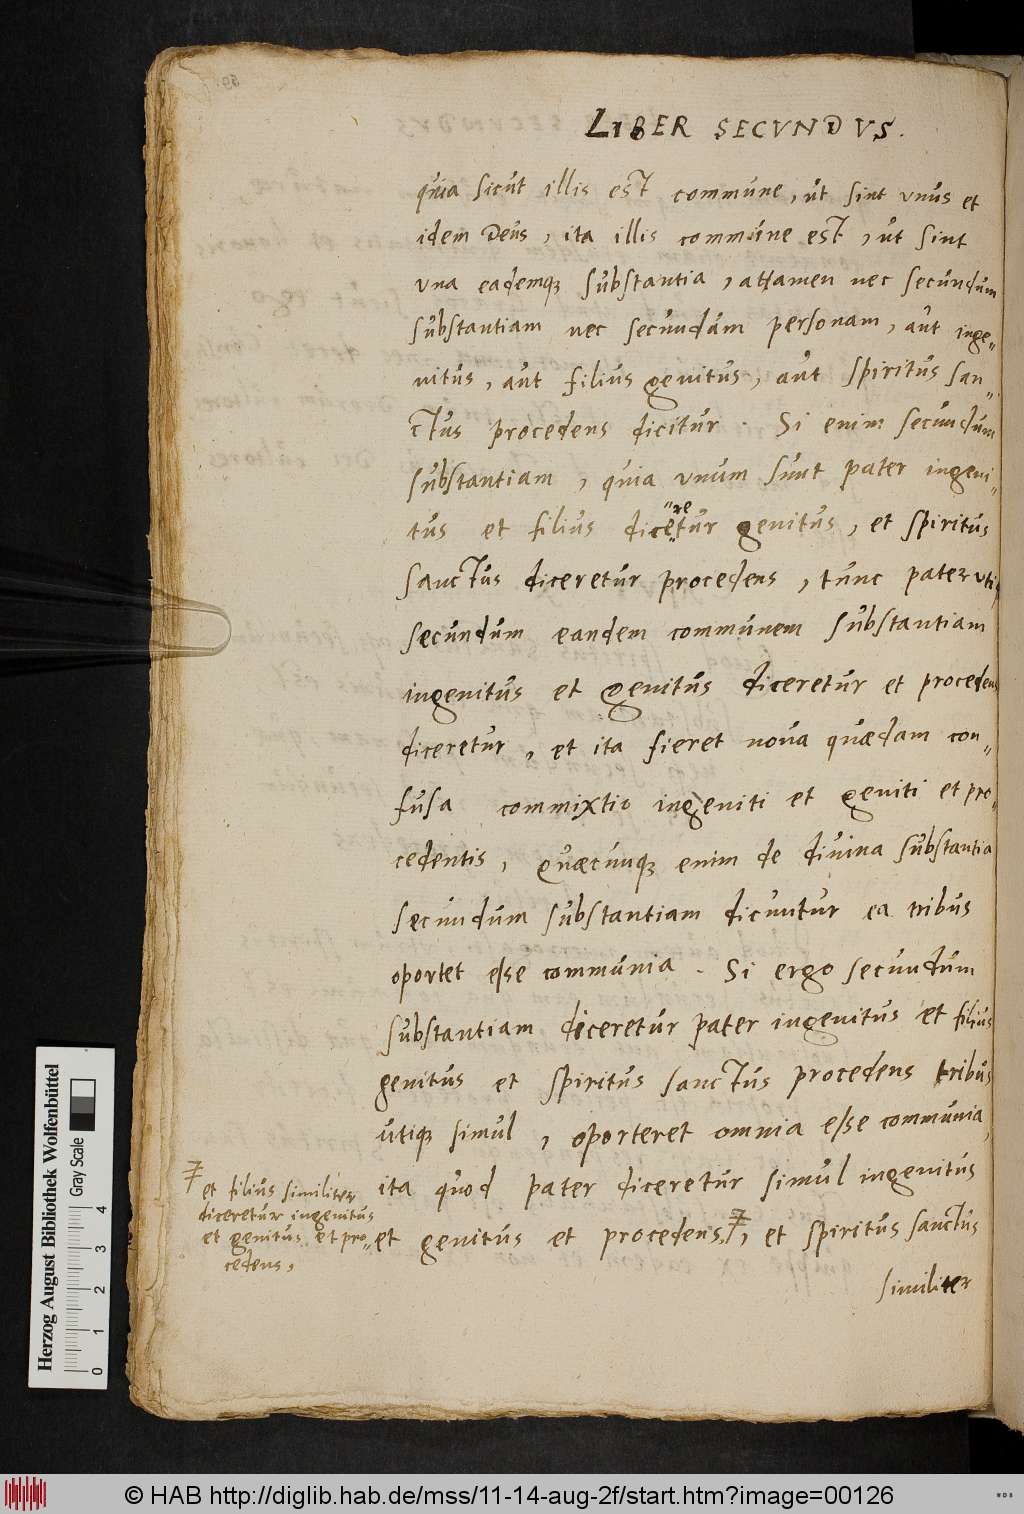 LIBER SECVNDVS.
quia sicut illis est commune, ut sint vnus et
idem Deus, ita illis commune est, ut sint
vna eademq; substantia, attamen nec secundum
substantiam nec secundam personam, aut inge„
nitus, aut filius genitus, aut spiritus san„
ctus procedens dicitur. Si enim secundum
substantiam, quia vnum sunt pater ingeni„
tus et filius dicetur genitus, et spiritus
„re
sanctus diceretur procedens, tunc pater vtiq;
secundum eandem communem substantiam
ingenitus et genitus diceretur et procedens
diceretur, et ita fieret noua quædam con„
fusa commixtio ingeniti et geniti et pro„
cedentis, quæcunq; enim de diuina substantia
secundum substantiam dicuntur ea tribus
oportet esse communia. Si ergo secundum
substantiam diceretur pater ingenitus et filius
genitus et spiritus sanctus procedens tribus
utiq; simul, oporteret omnia esse communia,
ita quod pater diceretur simul ingenitus
et genitus et procedens, et spiritus sanctus
similiter
et filius similiter
diceretur ingenitus
et genitus et pro„
cedens,
Herzog August Bibliothek Wolfenbüttel
Gray Scale
0 1 2 3 4
© HAB http://diglib.hab.de/mss/11-14-aug-2f/start.htm?image=00126